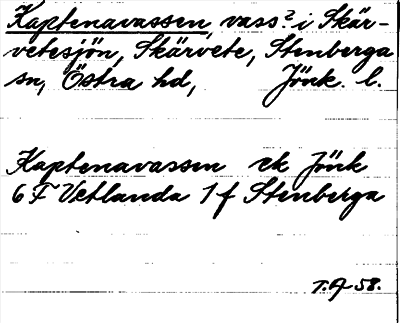 Kaptenavassen, vass? i Skär-
vetesjön, Skärvete, Stenberga
sn, Östra hd, Jönk. l.
Kaptenavassen ek Jönk
6 F Vetlanda 1 f Stenberga
T.A 58.